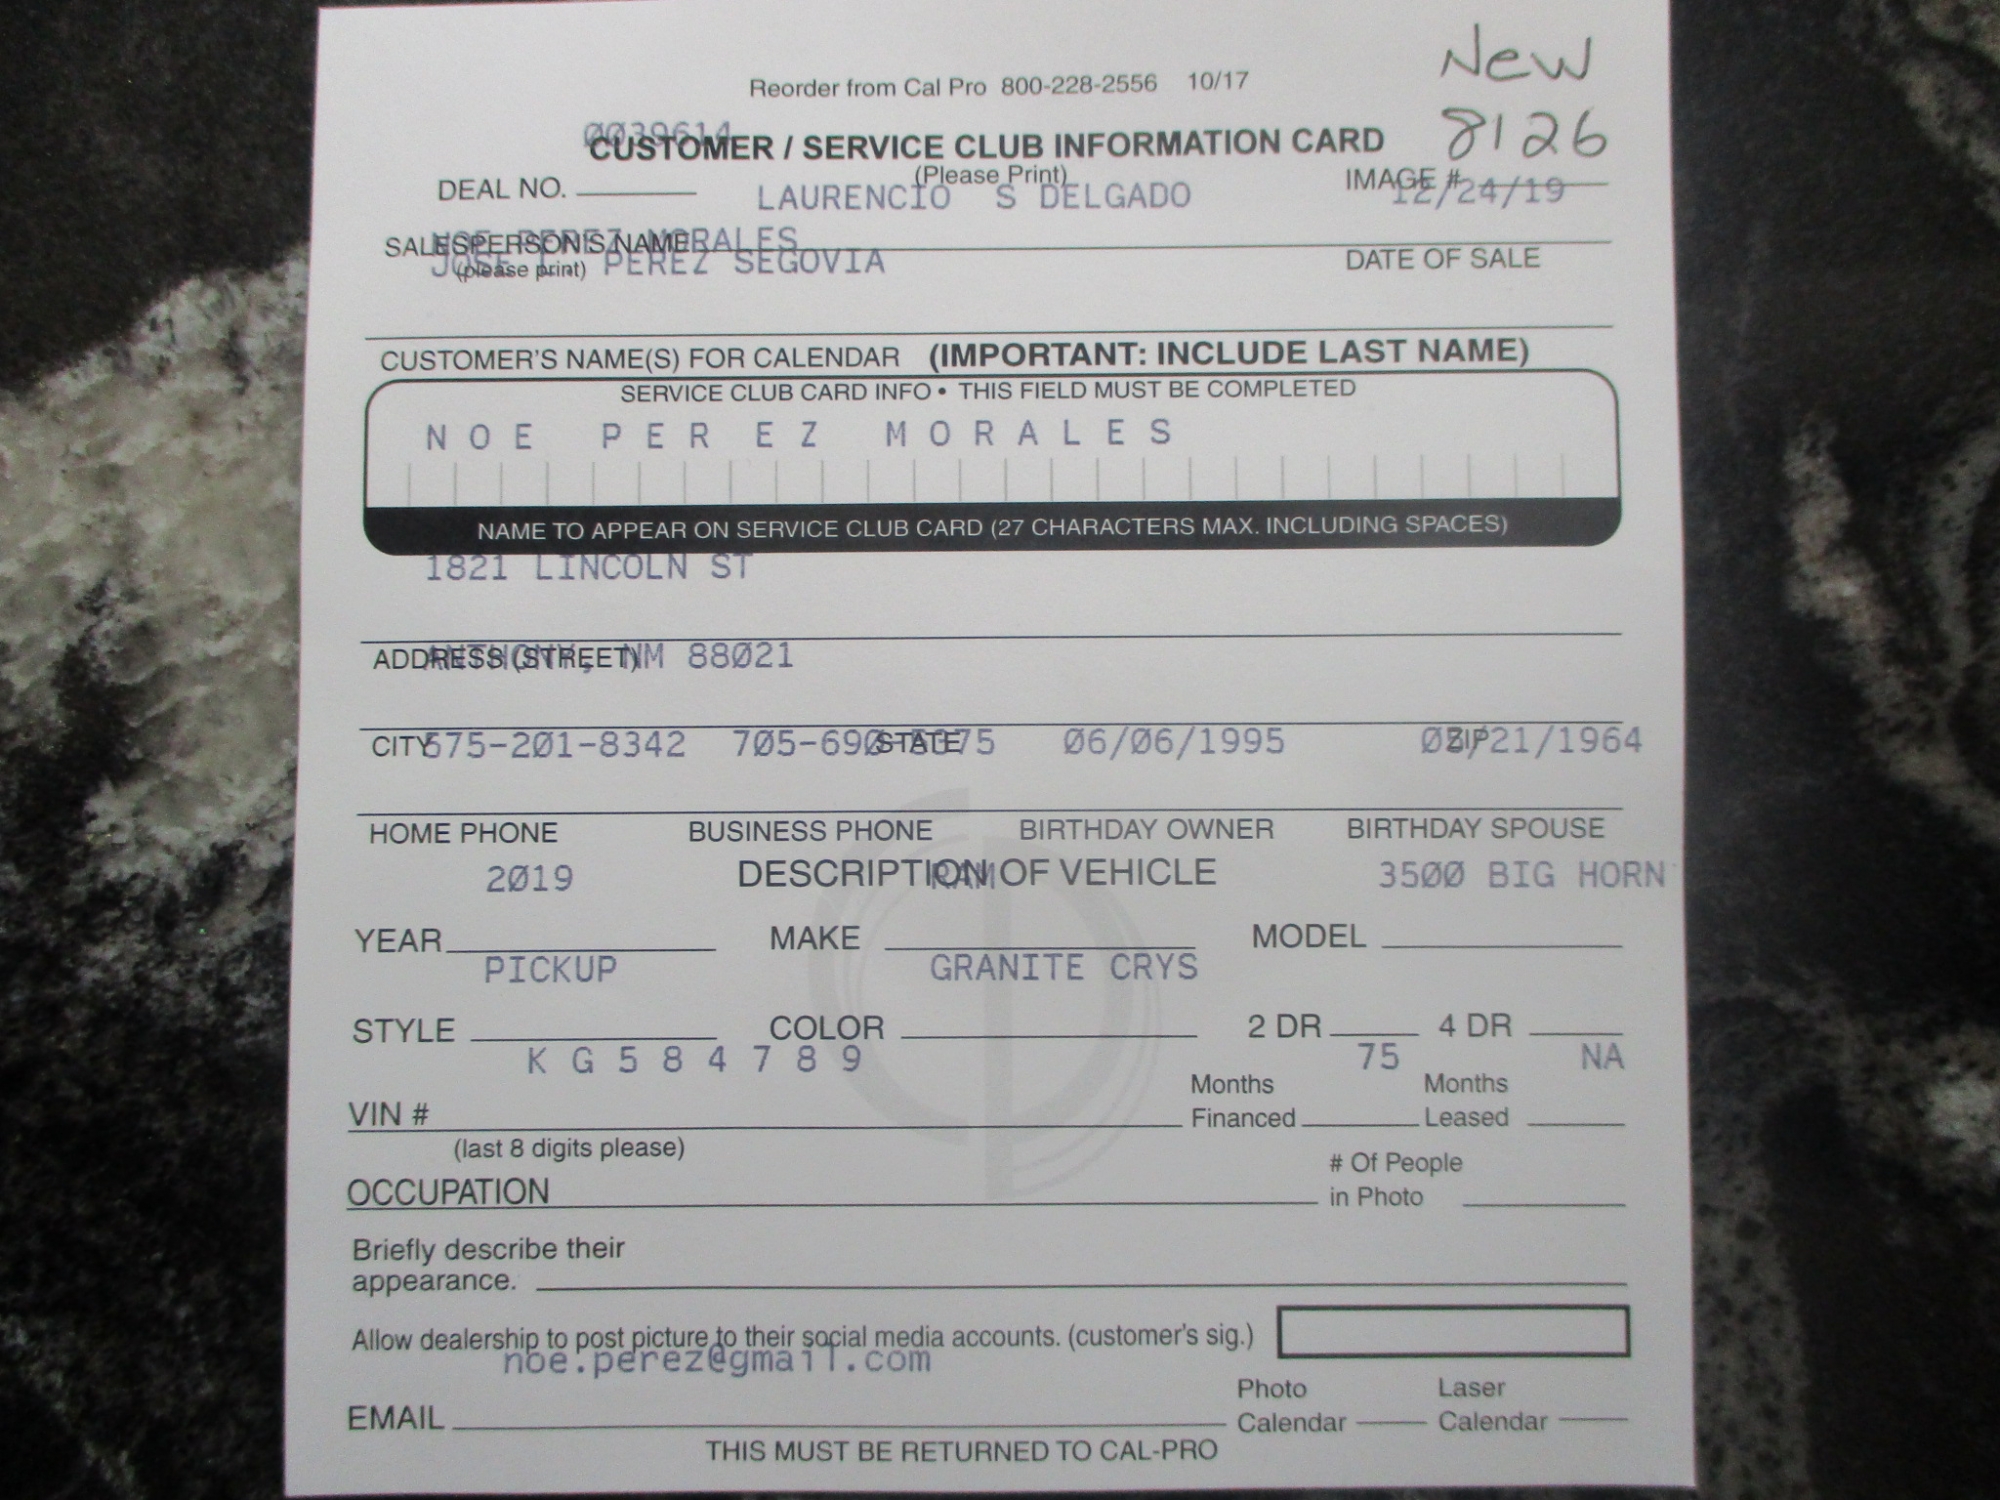 New
Reorder from Cal Pro 800-228-2556 10/17
8126
0039614
CUSTOMER / SERVICE CLUB INFORMATION CARD
(Please Print)
DEAL NO. LAURENCIO S DELGADO IMAGE # 12/24/19
NOE PEREZ MORALES
SALESPERSON'S NAME DATE OF SALE
JOSE PEREZ SEGOVIA
(please print)
CUSTOMER'S NAME(S) FOR CALENDAR (IMPORTANT: INCLUDE LAST NAME)
SERVICE CLUB CARD INFO • THIS FIELD MUST BE COMPLETED
NOE PEREZ MORALES
NAME TO APPEAR ON SERVICE CLUB CARD (27 CHARACTERS MAX. INCLUDING SPACES)
1821 LINCOLN ST
ANTHONY, NM 88021
ADDRESS (STREET)
575-201-8342 06/06/1995
CITY STATE ZIP
HOME PHONE BUSINESS PHONE BIRTHDAY OWNER BIRTHDAY SPOUSE
DESCRIPTION OF VEHICLE
2019 RAM 3500 BIG HORN
YEAR MAKE MODEL
PICKUP GRANITE CRYS
STYLE COLOR 2 DR 4 DR
KG584789 75 NA
VIN # Months Financed Months Leased
(last 8 digits please)
OCCUPATION # Of People in Photo
Briefly describe their
appearance.
Allow dealership to post picture to their social media accounts. (customer's sig.)
noe.perez@gmail.com
EMAIL Photo Calendar Laser Calendar
THIS MUST BE RETURNED TO CAL-PRO